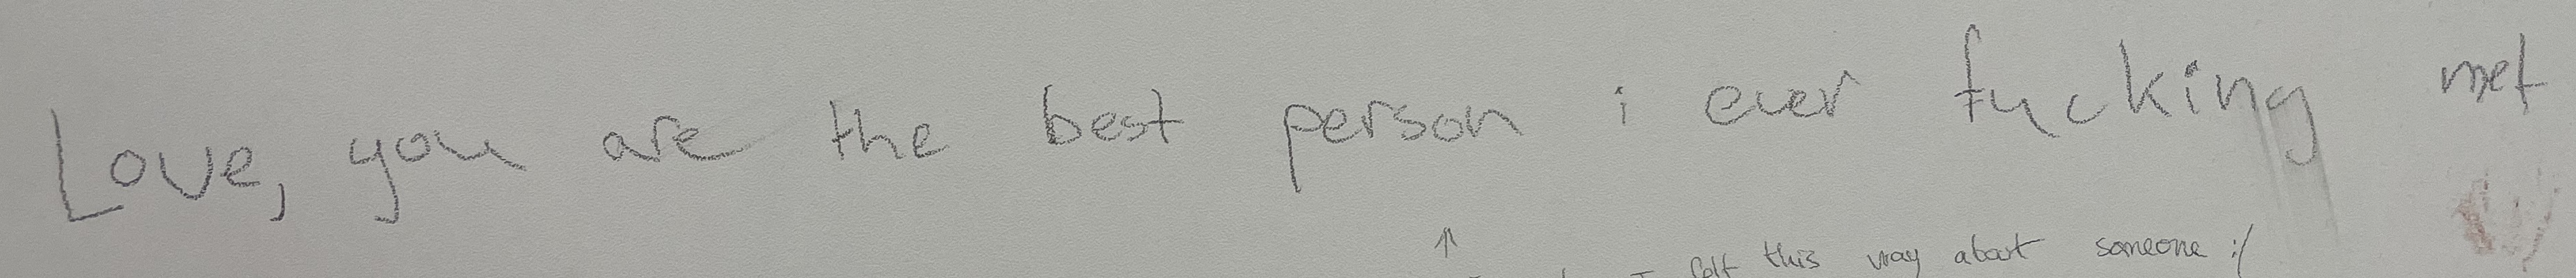 Love, you are the best person i ever fucking met
↑
I felt this way about someone :/